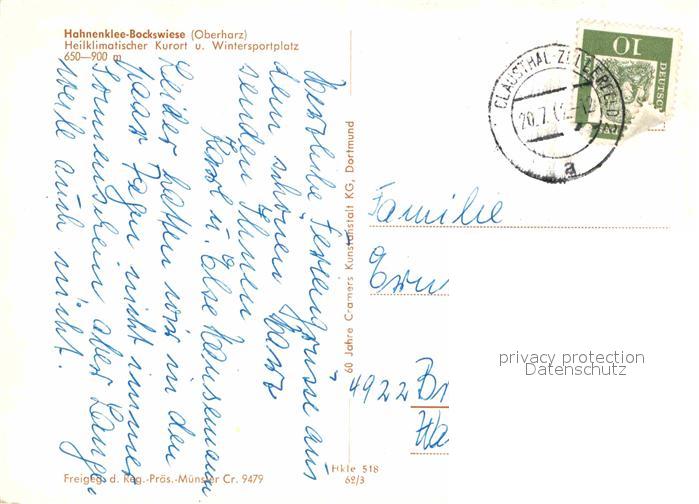 Hahnenklee-Bockswiese (Oberharz)
Heilklimatischer Kurort u. Wintersportplatz
650—900 m
Herzliche Feriengrüsse aus
dem schönen Harz
senden Ihnen
Karl u. Else Hansemann
Leider hatten wir in den
paar Tagen nicht immer
Sonnenschein aber Lange-
weile auch nicht.
60 Jahre Cramers Kunstanstalt KG, Dortmund
10
DEUTSC
CLAUSTHAL-ZELLERFELD
20.7.6
a
Familie
Ern
4922 Br
Ha
privacy protection
Datenschutz
Hkle 518
62/3
Freigeg. d. Reg.-Präs.-Münster Cr. 9479